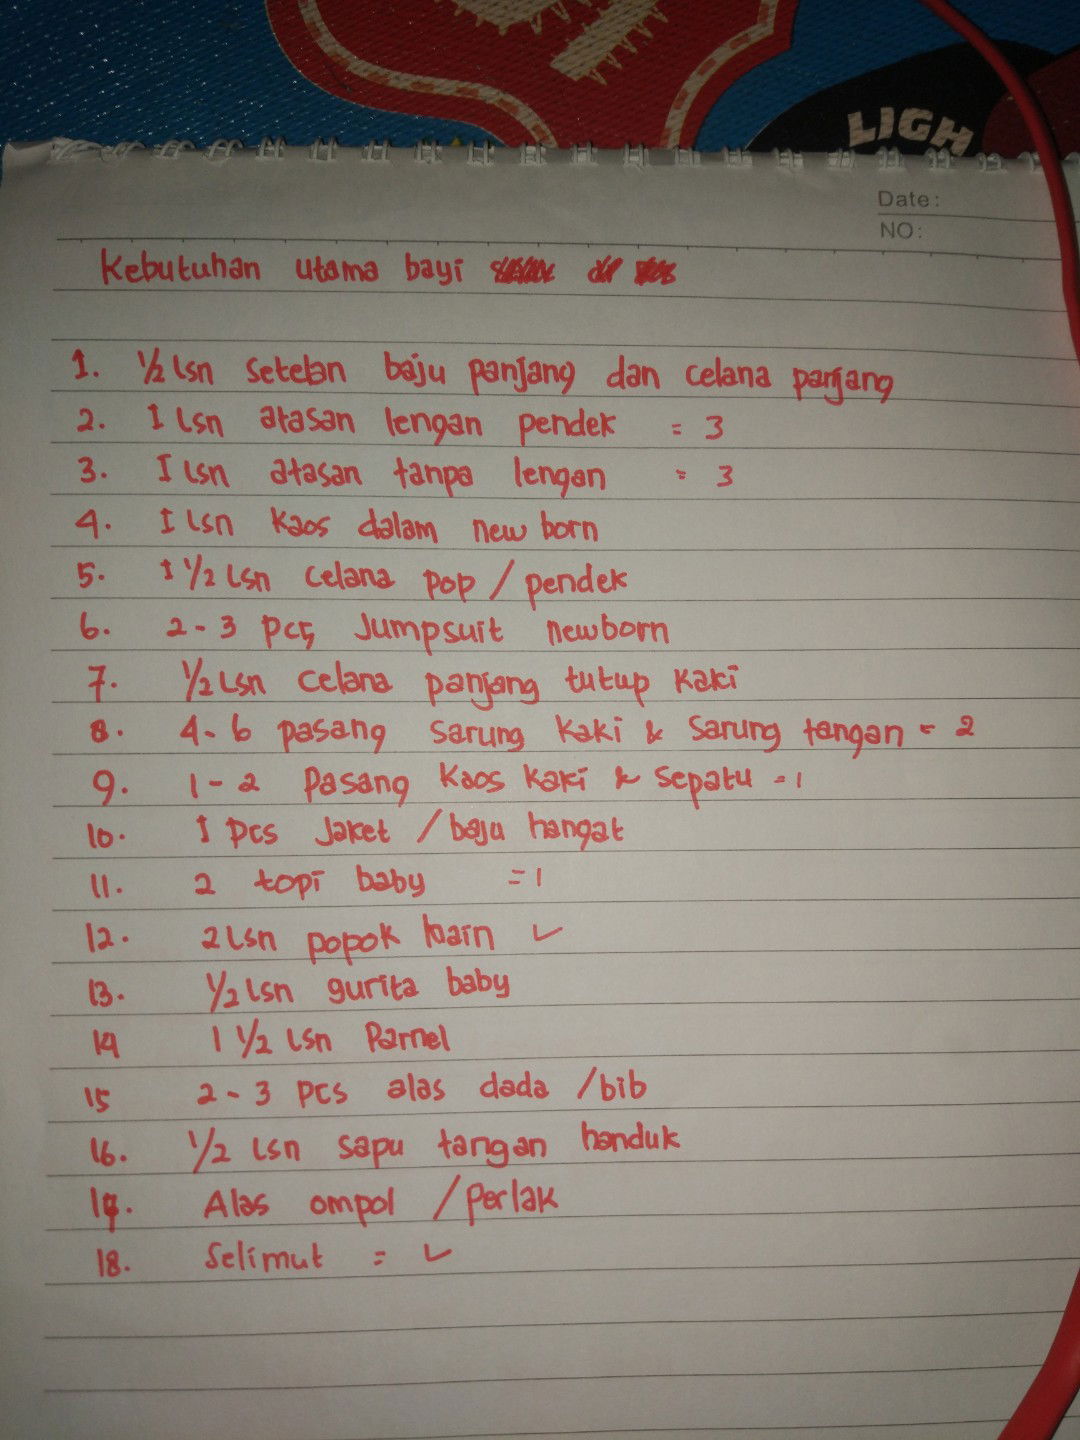 LIGH
Date:
NO:
Kebutuhan utama bayi
1. 1/2 lsn setelan baju panjang dan celana panjang
2. 1 lsn atasan lengan pendek = 3
3. 1 lsn atasan tanpa lengan = 3
4. 1 lsn kaos dalam new born
5. 1 1/2 lsn celana pop / pendek
6. 2-3 pcs Jumpsuit newborn
7. 1/2 lsn celana panjang tutup kaki
8. 4-6 pasang sarung kaki & sarung tangan = 2
9. 1-2 Pasang kaos kaki & sepatu = 1
10. 1 pcs Jaket / baju hangat
11. 2 topi baby = 1
12. 2 lsn popok kain ✓
13. 1/2 lsn gurita baby
14 1 1/2 lsn Parnel
15 2-3 pcs alas dada /bib
16. 1/2 lsn sapu tangan handuk
17. Alas ompol / Perlak
18. Selimut = ✓